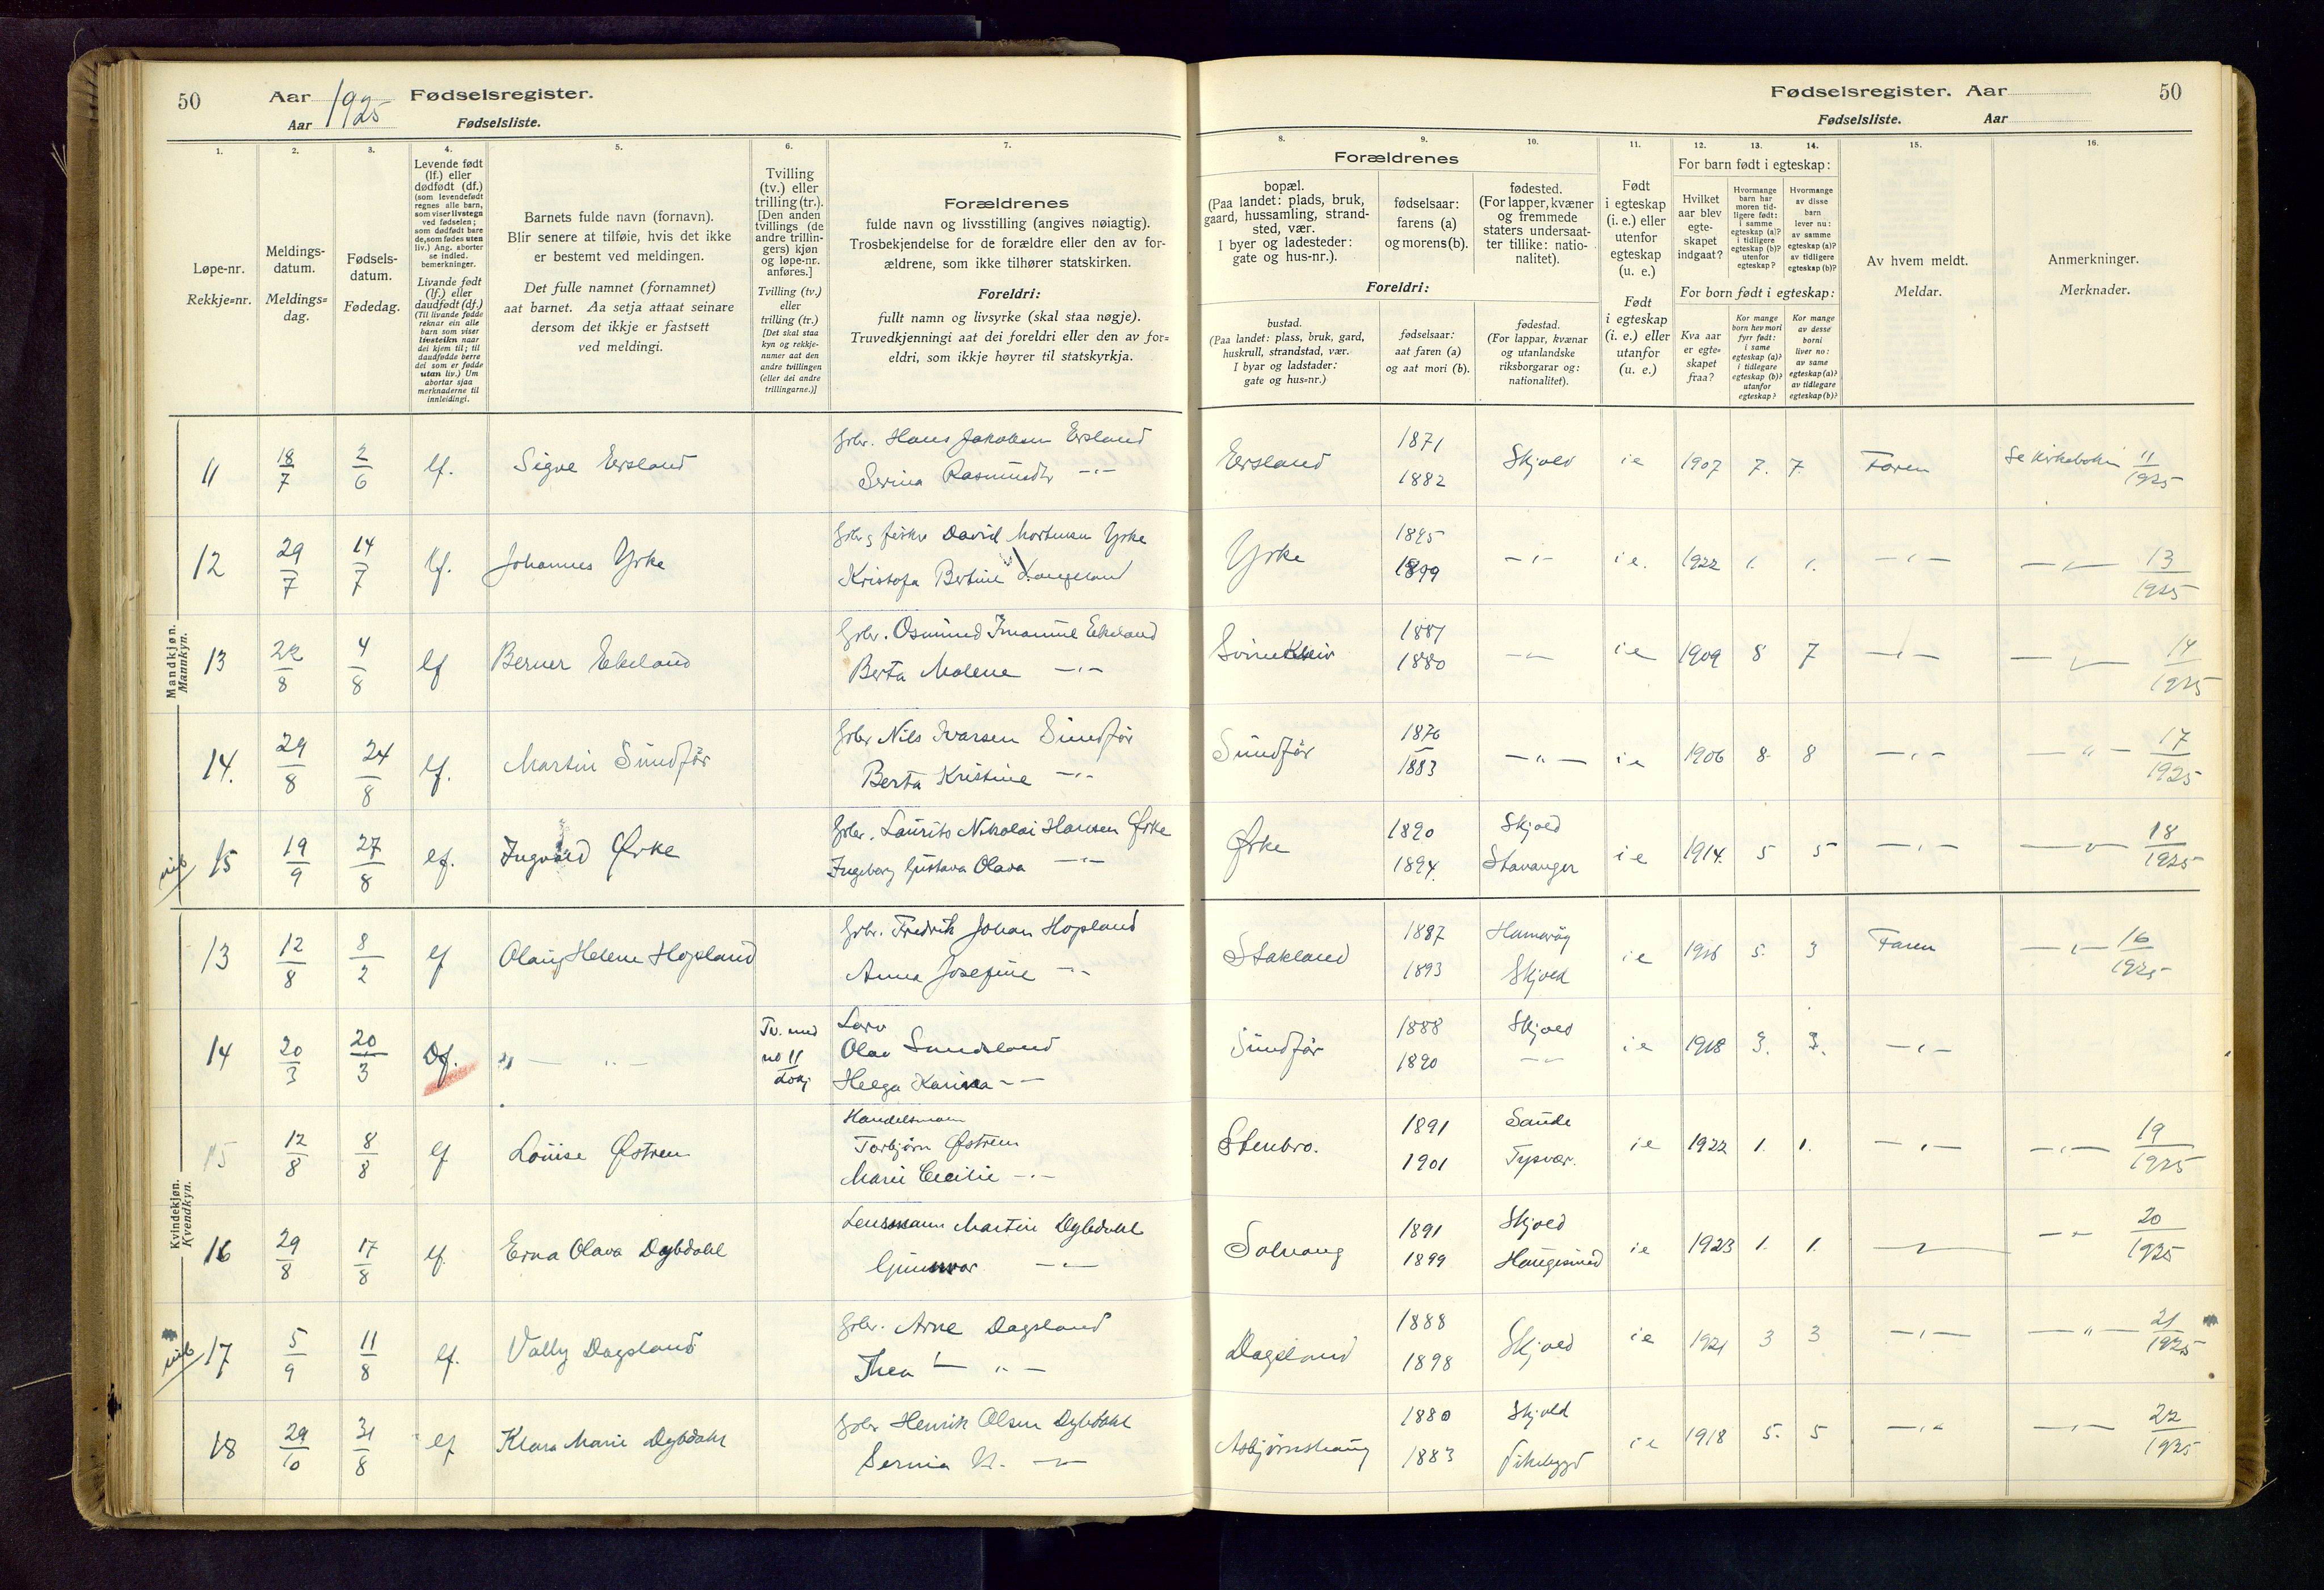 50 Aar 1925 Fødselsregister.
Aar Fødselsliste.
Fødselsregister. Aar 50
Fødselsliste. Aar
1. 2. 3. 4. 5. 6. 7. 8. 9. 10. 11. 12. 13. 14. 15. 16.
Løpe-nr.
Rekkje-nr.
Meldings-
datum.
Meldings-
dag.
Fødsels-
datum.
Fødedag.
Levende født
(lf.) eller
dødfødt (df.)
(som levendefødt
regnes alle barn,
som viser livstegn
ved fødselen;
som dødfødt bare
de, som fødes uten
liv.) Ang. aborter
se indled.
bemerkninger.
Livande født
(lf.) eller
daudfødt (df.)
(Til livande fødde
reknar ein alle
barn som viser
livsteikn naar
dei kjem til; til
daudfødde berre
dei som er fødde
utan liv.) Um
abortar sjaa
merknaderne til
innleidingi.
Barnets fulde navn (fornavn).
Blir senere at tilføie, hvis det ikke
er bestemt ved meldingen.
Det fulle namnet (fornamnet)
aat barnet. Aa setja attaat seinare
dersom det ikkje er fastsett
ved meldingi.
Tvilling
(tv.) eller
trilling (tr.).
[Den anden
tvillings (de
andre trillin-
gers) kjøn
og løpe-nr.
anføres.]
Tvilling (tv.)
eller
trilling (tr.)
[Det skal staa
kyn og rekkje-
numer aat den
andre tvillingen
(eller dei andre
trillingarne.)]
Forældrenes
fulde navn og livsstilling (angives nøiagtig).
Trosbekjendelse for de forældre eller den av for-
ældrene, som ikke tilhører statskirken.
Foreldri:
fullt namn og livsyrke (skal staa nøgje).
Truvedkjenningi aat dei foreldri eller den av for-
eldri, som ikkje høyrer til statskyrkja.
Forældrenes
bopæl.
(Paa landet: plads, bruk,
gaard, hussamling, strand-
sted, vær.
I byer og ladesteder:
gate og hus-nr.).
fødselsaar:
farens (a)
og morens (b).
fødested.
(For lapper, kvæner
og fremmede
staters undersaat-
ter tillike: natio-
nalitet).
Foreldri:
bustad.
(Paa landet: plass, bruk, gard,
huskrull, strandstad, vær.
I byar og ladstader:
gate og hus-nr.)
fødselsaar:
aat faren (a)
og aat mori (b).
fødestad.
(For lappar, kvænar
og utanlandske
riksborgarar og:
nationalitet).
Født
i egteskap
(i. e.) eller
utenfor
egteskap
(u. e.)
Født
i egteskap
(i. e.) eller
utanfor
(u. e.)
For barn født i egteskap:
Hvilket
aar blev
egte-
skapet
indgaat?
Hvormange
barn har
moren tid-
ligere født:
i samme
egteskap (a)?
i tidligere
egteskap (b)?
utenfor
egteskap?
Hvormange
av disse
barn
lever nu:
av samme
egteskap (a)?
av tidligere
egteskap (b)?
For born født i egteskap:
Kva aar
er egte-
skapet
fraa?
Kor mange
born hev mori
fyrr født:
i same
egteskap (a)?
i tidlegare
egteskap (b)?
utanfor
egteskap?
Kor mange
av desse
borni
liver no:
av same
egteskap (a)?
av tidlegare
egteskap (b)?
Av hvem meldt.
Meldar.
Anmerkninger.
Merknader.
Mandkjøn.
Mannkyn.
11 18/7 2/6 lf. Sigve Eersland Gbr. Hans Jakobsen Eersland Eersland 1871 Skjold i e 1907 7. 7. Faren Se kirkeboken 11/1925
Serina Rasmusdtr —"— 1882
12 29/7 14/7 lf. Johannes Yrke Gbr. og fisker David Mortensen Yrke Yrke 1895 —"— i e. 1922 1. 1. —"— —"— 13/1925
Kristofa Bertine Langeland 1899
13 22/8 4/8 lf Berner Ekeland Gbr. Osmund Imanuel Ekeland 1881 —"— i e 1909 8 7 —"— —"— 14/1925
Berta Malene —"— 1880
14. 29/8 24/8 lf. Martin Sundfør Gbr Nils Ivarsen Sundfør Sundfør 1876 —"— i e 1906 8. 8 —"— —"— 17/1925
Berta Kristine —"— 1883
15 19/9 27/8 lf. Ingvald Ørke Gbr. Laurits Nikolai Hansen Ørke Ørke 1890 Skjold i e 1914. 5 5 —"— —"— 18/1925
Ingeborg Gustava Olava —"— 1894. Stavanger
Kvindekjøn.
Kvendkyn.
13 12/8 8/2 lf Olaug Helene Hopland Gbr. Fredrik Johan Hopland Stakland 1887 i e 1916 5. 3 Faren —"— 16/1925
Anna Josefine —"— 1893 Skjold
14 20/3 20/3 Df. " — " — Tv. med no 11 Olav Sundeland Sundfør 1888 Skjold i e 1918 3. 3. —"—
Helga Karina —"— 1890 —"—
15 12/8 8/8 lf Louise Østrem Handelsmann
Torbjørn Østrem Stenbro. 1891 Sande i e 1922 1. 1. —"— —"— 19/1925
Marie Cecilie —"— 1901 Tysvær.
16 29/8 17/8 lf. Erna Olava Dybdahl Lensmann Martin Dybdahl Solvang 1891 Skjold i e 1923 1. 1. —"— —"— 20/1925
Gunnvor —"— 1899 Haugesund
17 5/9 11/8 lf. Vally Dagsland Gbr. Arne Dagsland Dagsland 1888 Skjold i e 1921 3 3 —"— —"— 21/1925
Thea —"— 1898
18 29/10 31/8 lf Klara Marie Dybdahl Gbr Henrik Olsen Dybdahl Asbjørnshaug 1880 Skjold i e 1918 5. 5 —"— —"— 22/1925
1883 Vikebygd